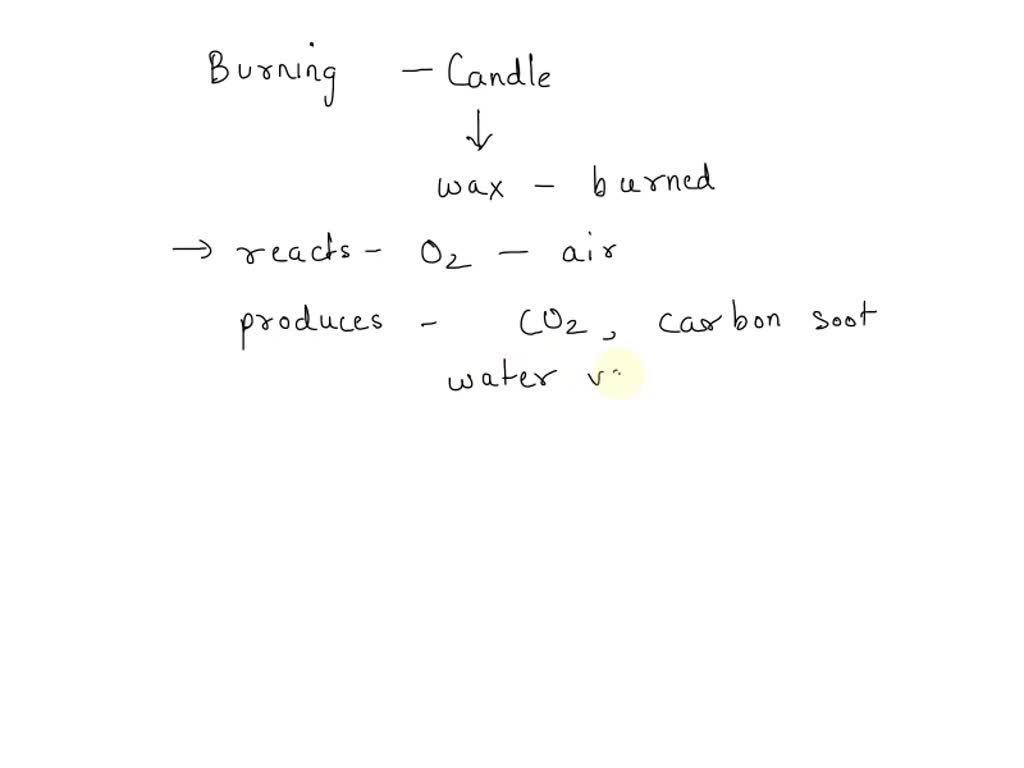 Burning — Candle
↓
wax – burned
→ reacts – O₂ — air
produces – CO₂, carbon soot
water